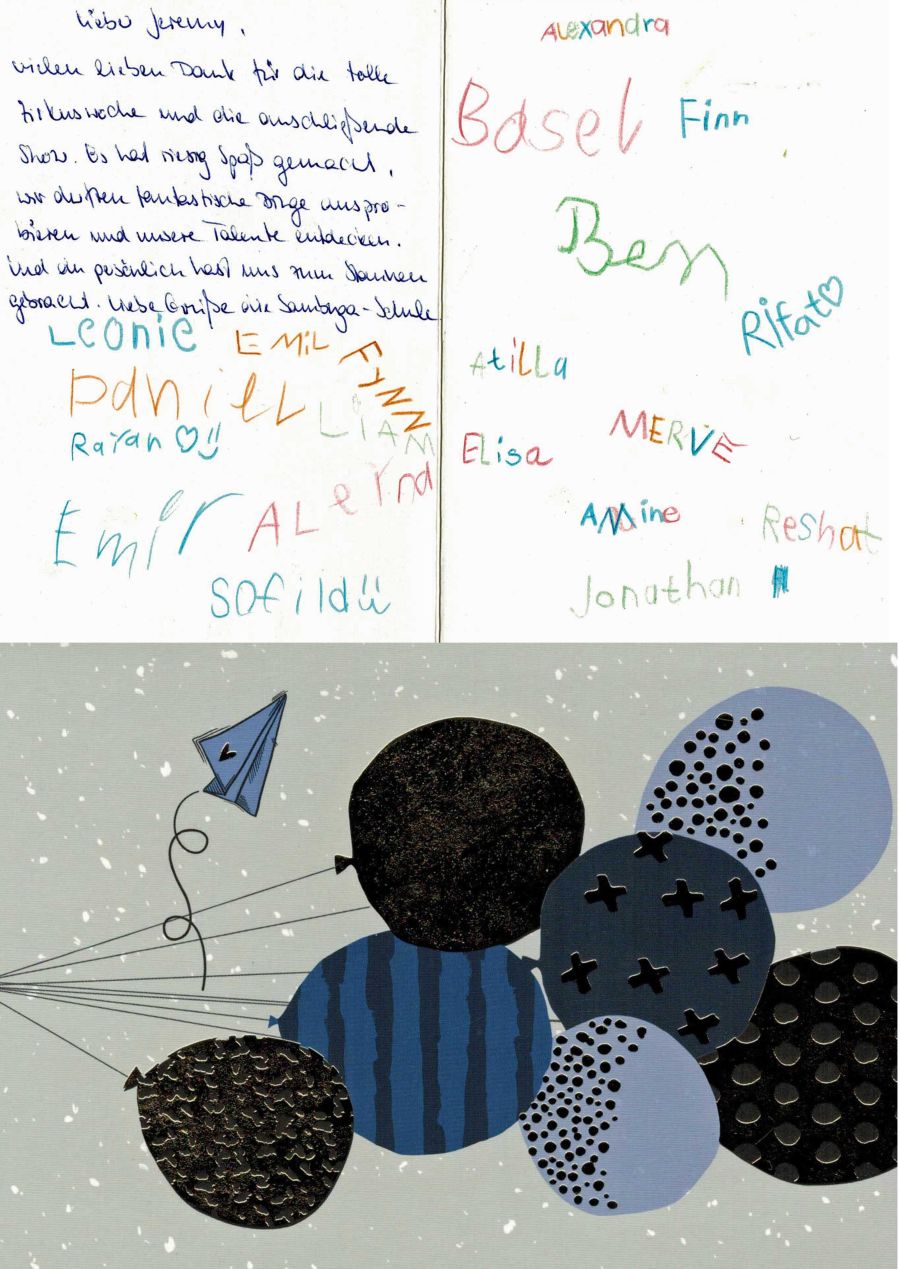 Lieber Jeremy,
vielen lieben Dank für die tolle
Zirkuswoche und die anschließende
Show. Es hat riesig Spaß gemacht,
wir durften fantastische Dinge auspro-
bieren und unsere Talente entdecken.
Und du persönlich hast uns zum Staunen
gebracht. Liebe Grüße die Schule
Leonie
EMIL
FYNN
DANIEL
LiAM
Raran
Emir
ALeyna
Alexandra
Basel
Finn
Ben
Rifat
Atilla
MERVE
ELisa
Amine
Reshat
Jonathan